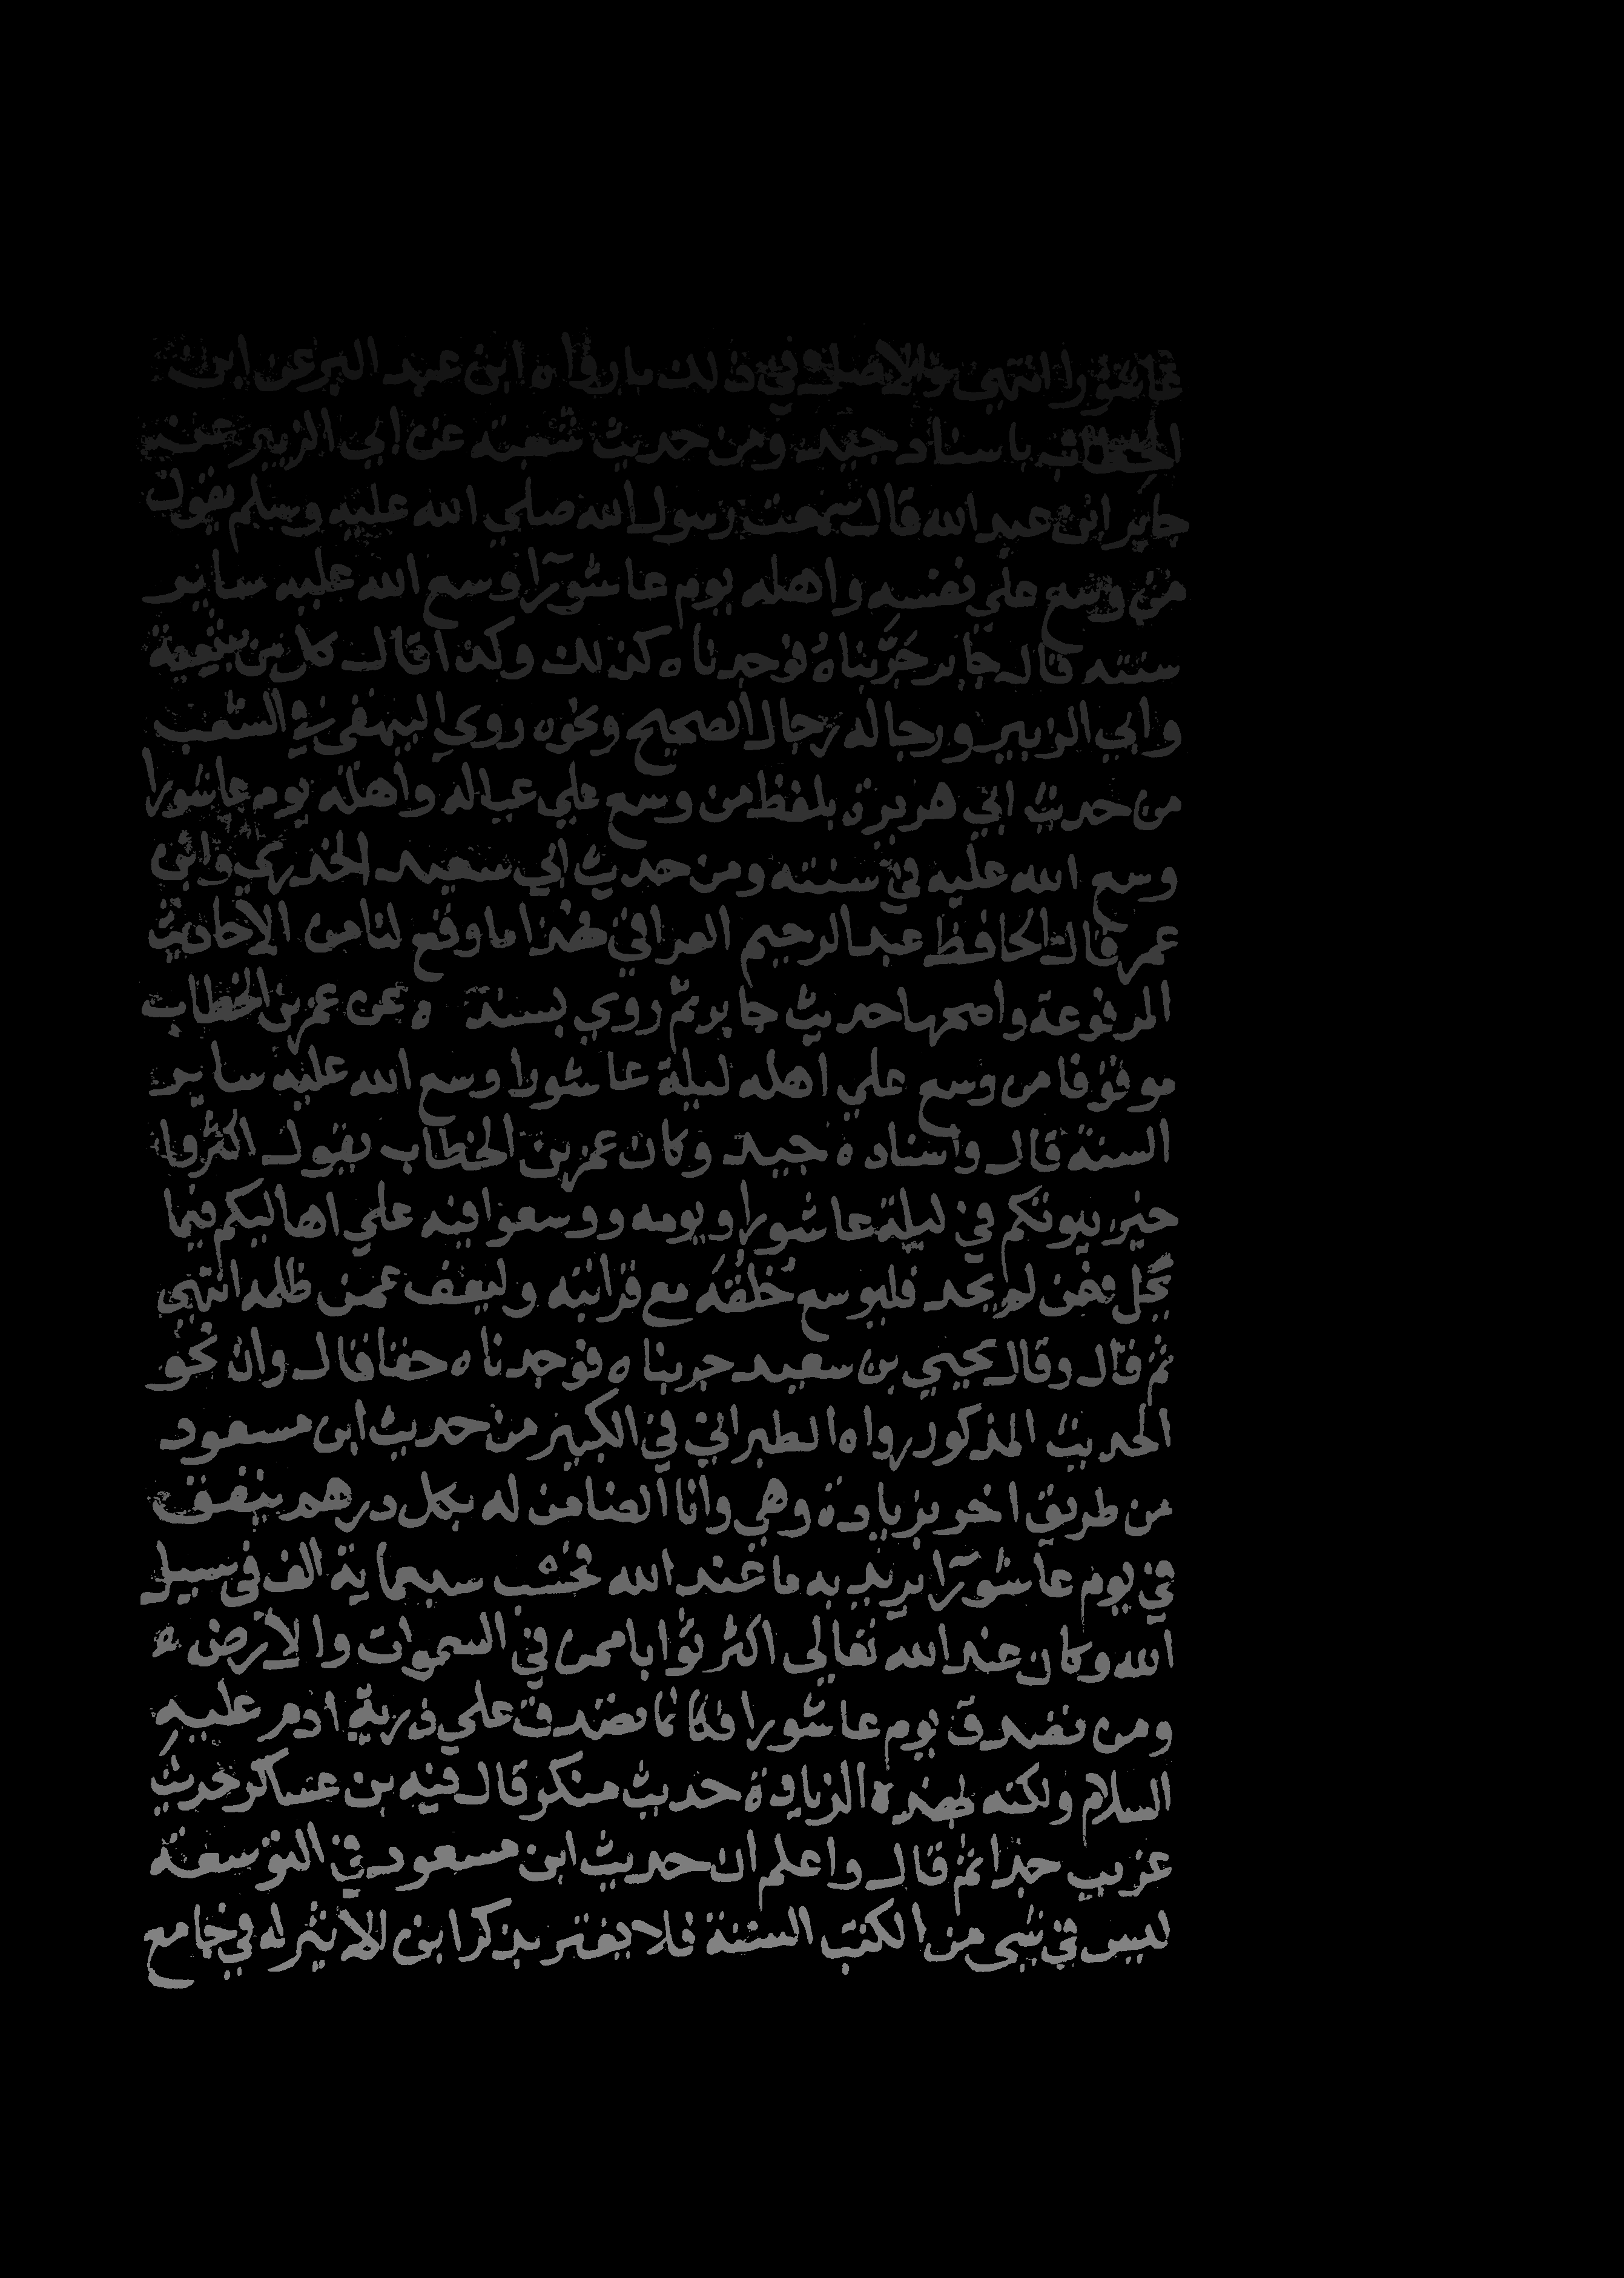 عاشورا انتهى والاصل في ذلك ما رواه ابن عبد البر عن ابن
الخطاب باسناد جيد ومن حديث شعبة عن ابي الزبير عن
جابر ابن عبد الله قال سمعت رسول الله صلي الله عليه وسلم يقول
من وسع علي نفسه واهله يوم عاشورآ وسع الله عليه ساير
سنته قال جابر جَرَّبناهُ فوجدناه كذلك وكذا قال كل من
وابي الزبير ورجاله رجال الصحيح ونحوه روي البيهقي في الشعب
من حديث ابي هريرة بلفظ من وسع علي عياله واهله يوم عاشورا
وسع الله عليه في سنته ومن حديث ابي سعيد الخدري وابن
عمر قال الحافظ عبد الرحيم العراقي هذا ما وقع لنا من الاحاديث
المرفوعة واصحها حديث جابر ثم روي بسنده عن عمر بن الخطاب
موقوفا من وسع علي اهله ليلة عاشورا وسع الله عليه ساير
السنة قال واسناده جيد وكان عمر بن الخطاب يقول اكثروا
خير بيوتكم في ليلة عاشورا ويومه ووسعوا فيه علي اهاليكم فيما
يحل فمن لم يجد فليوسع خلقه مع قرابته وليعف عمن ظلمه انتهي
ثم قال وقال يحيي بن سعيد جربناه فوجدناه حقا قال وان نحو
الحديث المذكور رواه الطبراني في الكبير من حديث ابن مسعود
من طريق اخر بزيادة وهي وانا الضامن له بكل درهم ينفق
في يوم عاشورآ يريد به ما عند الله تحسب سبعماية الف في سبيل
الله وكان عند الله تعالى اكثر ثوابا ممن في السموات والارض ه
ومن تصدق يوم عاشورا فكانما تصدق علي ذرية ادم عليه
السلام ولكنه لهذه الزيادة حديث منكر قال فيه بن عساكر حديث
غريب جدا ثم قال واعلم ان حديث ابن مسعود في التوسعة
ليس في شى من الكتب الستة فلا يغتر بذكر ابن الاثير له في جامع